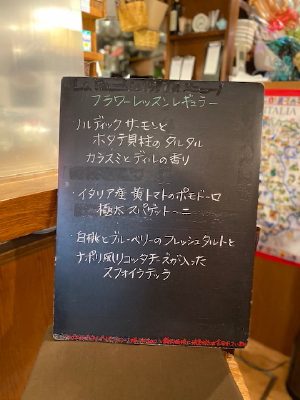 フラワーレッスンレギュラー
・ノルディックサーモンと
ホタテ貝柱のタルタル
カラスミとディルの香り
・イタリア産 黄トマトのポモドーロ
極太スパゲットーニ
・白桃とブルーベリーのフレッシュタルトと
ナポリ風リコッタチーズが入った
スフォイアテッラ
ITALIA